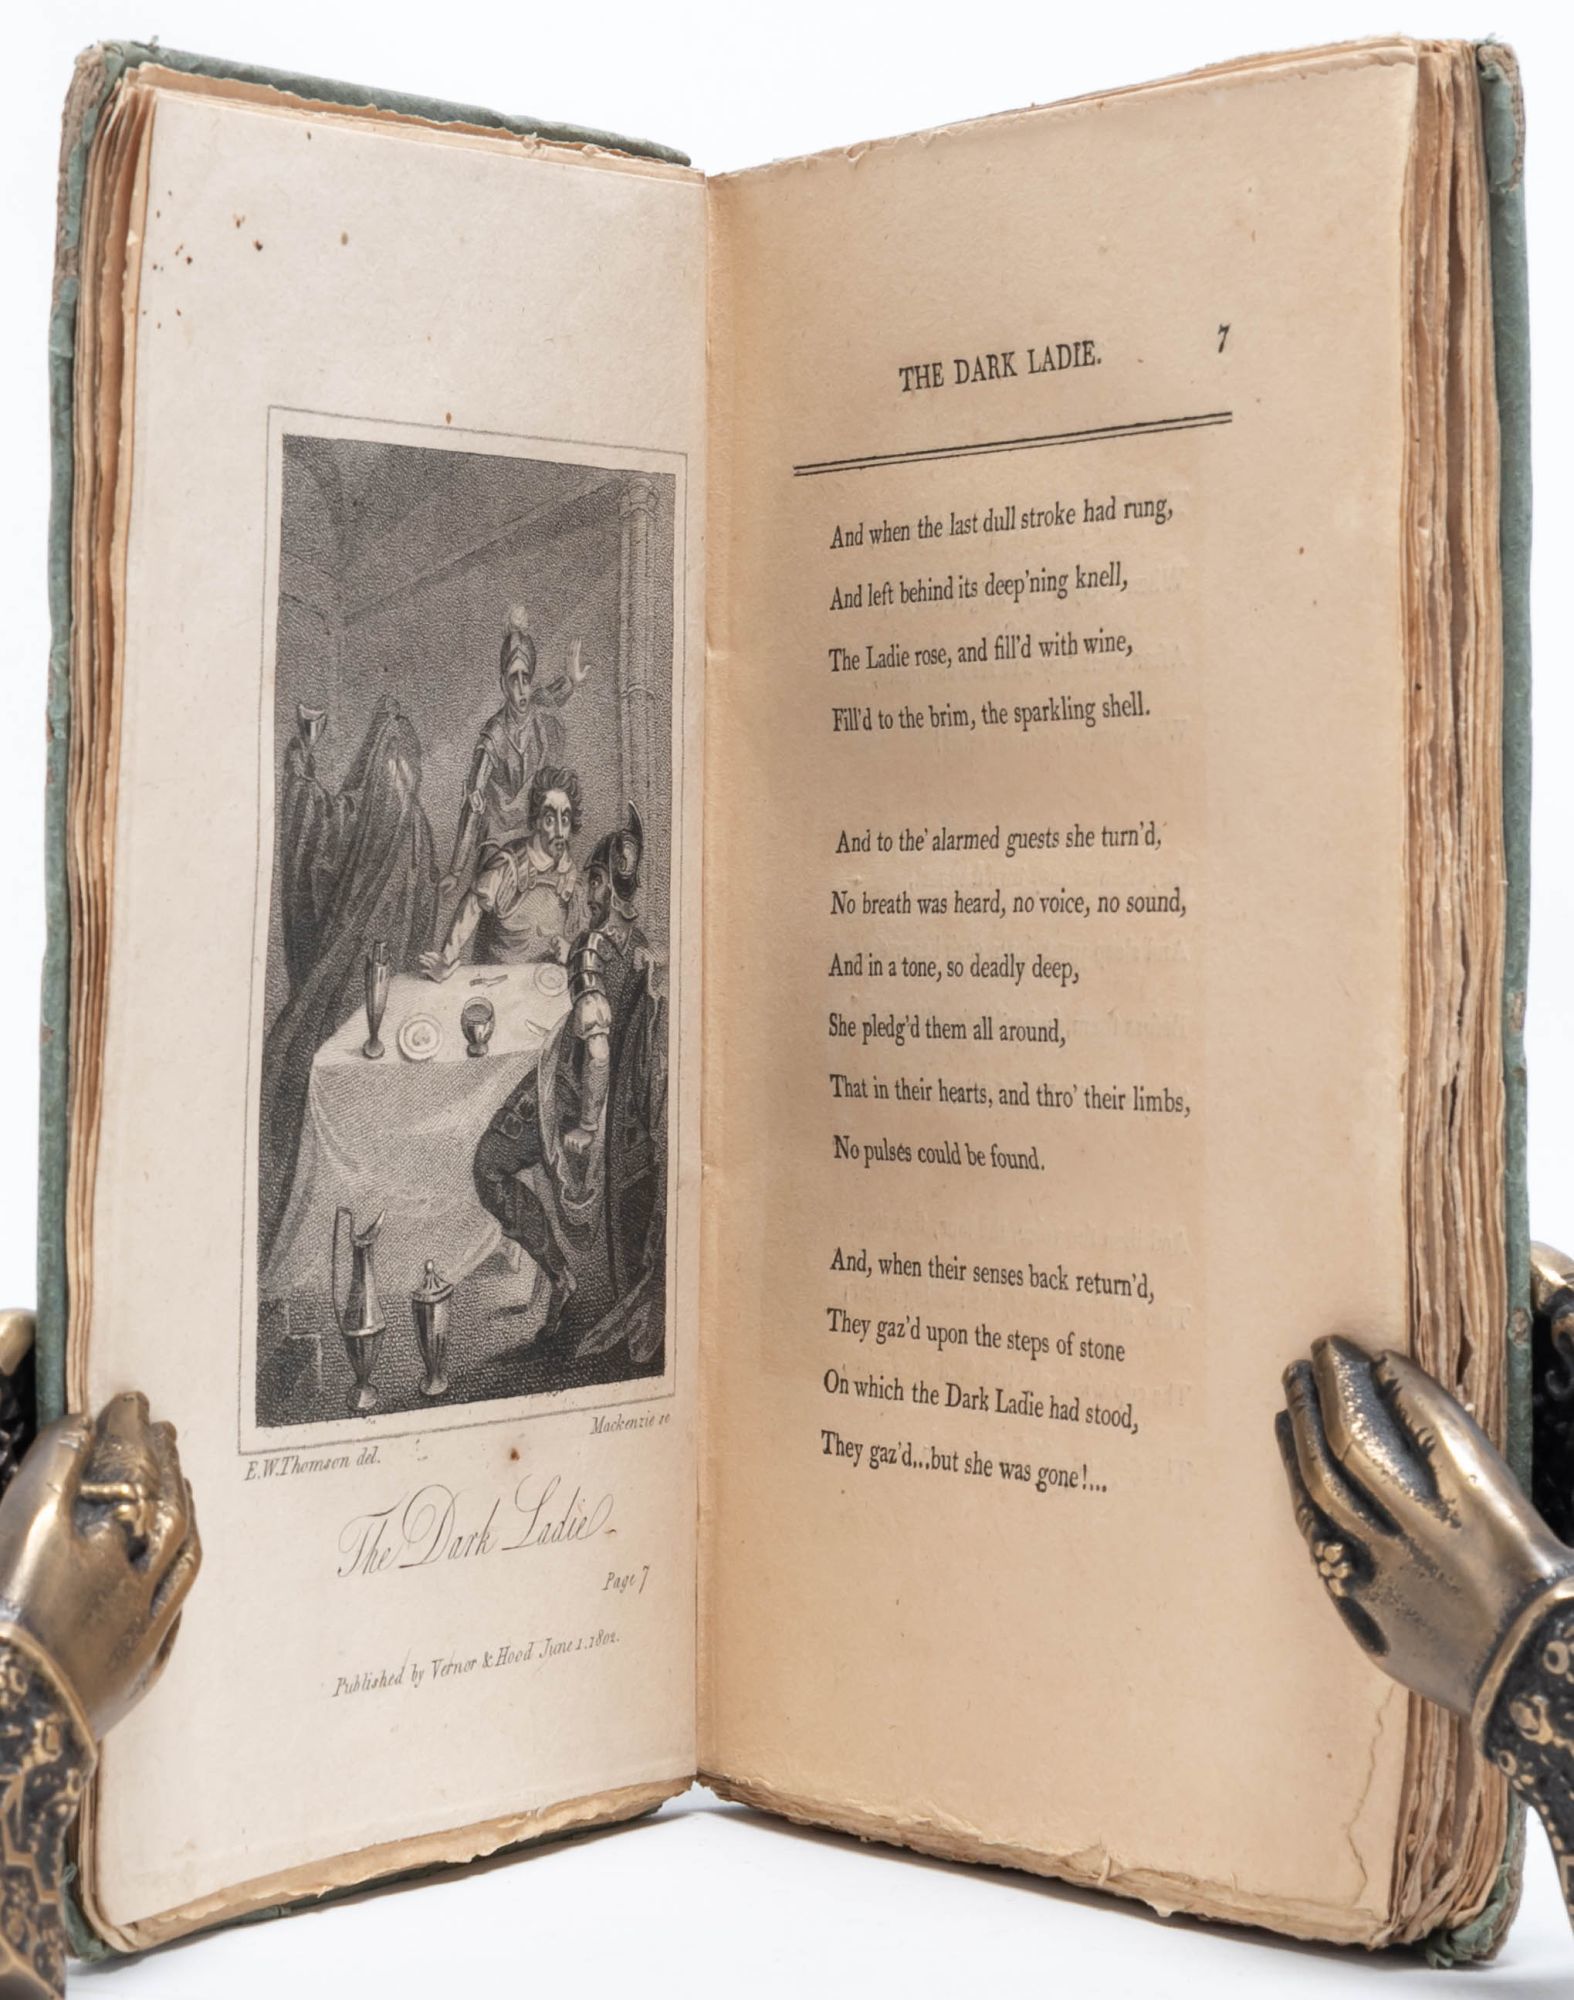 E.W.Thomson del.
Mackenzie sc
The Dark Ladie
Page 7
Published by Vernor & Hood June 1. 1802.
THE DARK LADIE. 7
And when the last dull stroke had rung,
And left behind its deep'ning knell,
The Ladie rose, and fill'd with wine,
Fill'd to the brim, the sparkling shell.
And to the' alarmed guests she turn'd,
No breath was heard, no voice, no sound,
And in a tone, so deadly deep,
She pledg'd them all around,
That in their hearts, and thro' their limbs,
No pulses could be found.
And, when their senses back return'd,
They gaz'd upon the steps of stone
On which the Dark Ladie had stood,
They gaz'd...but she was gone!...